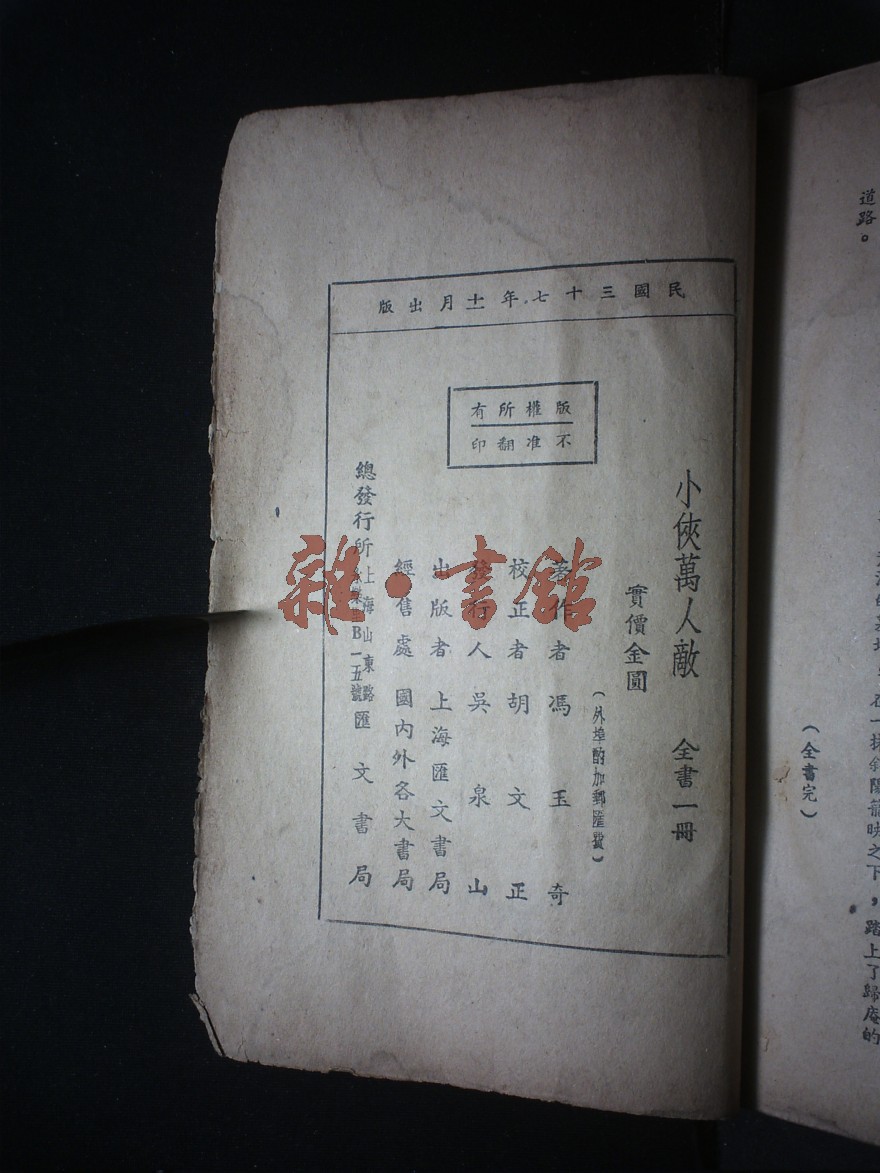 民國三十七年十一月出版
版權所有
不准翻印
小俠萬人敵 全書一冊
實價金圓
（外埠酌加郵匯費）
著作者 馮玉奇
校正者 胡文正
發行人 吳泉山
出版者 上海匯文書局
經售處 國內外各大書局
總發行所 上海山東路 B一五號 匯文書局
雜·書館
道路。
在一抹斜陽籠映之下，踏上了歸庵的
（全書完）